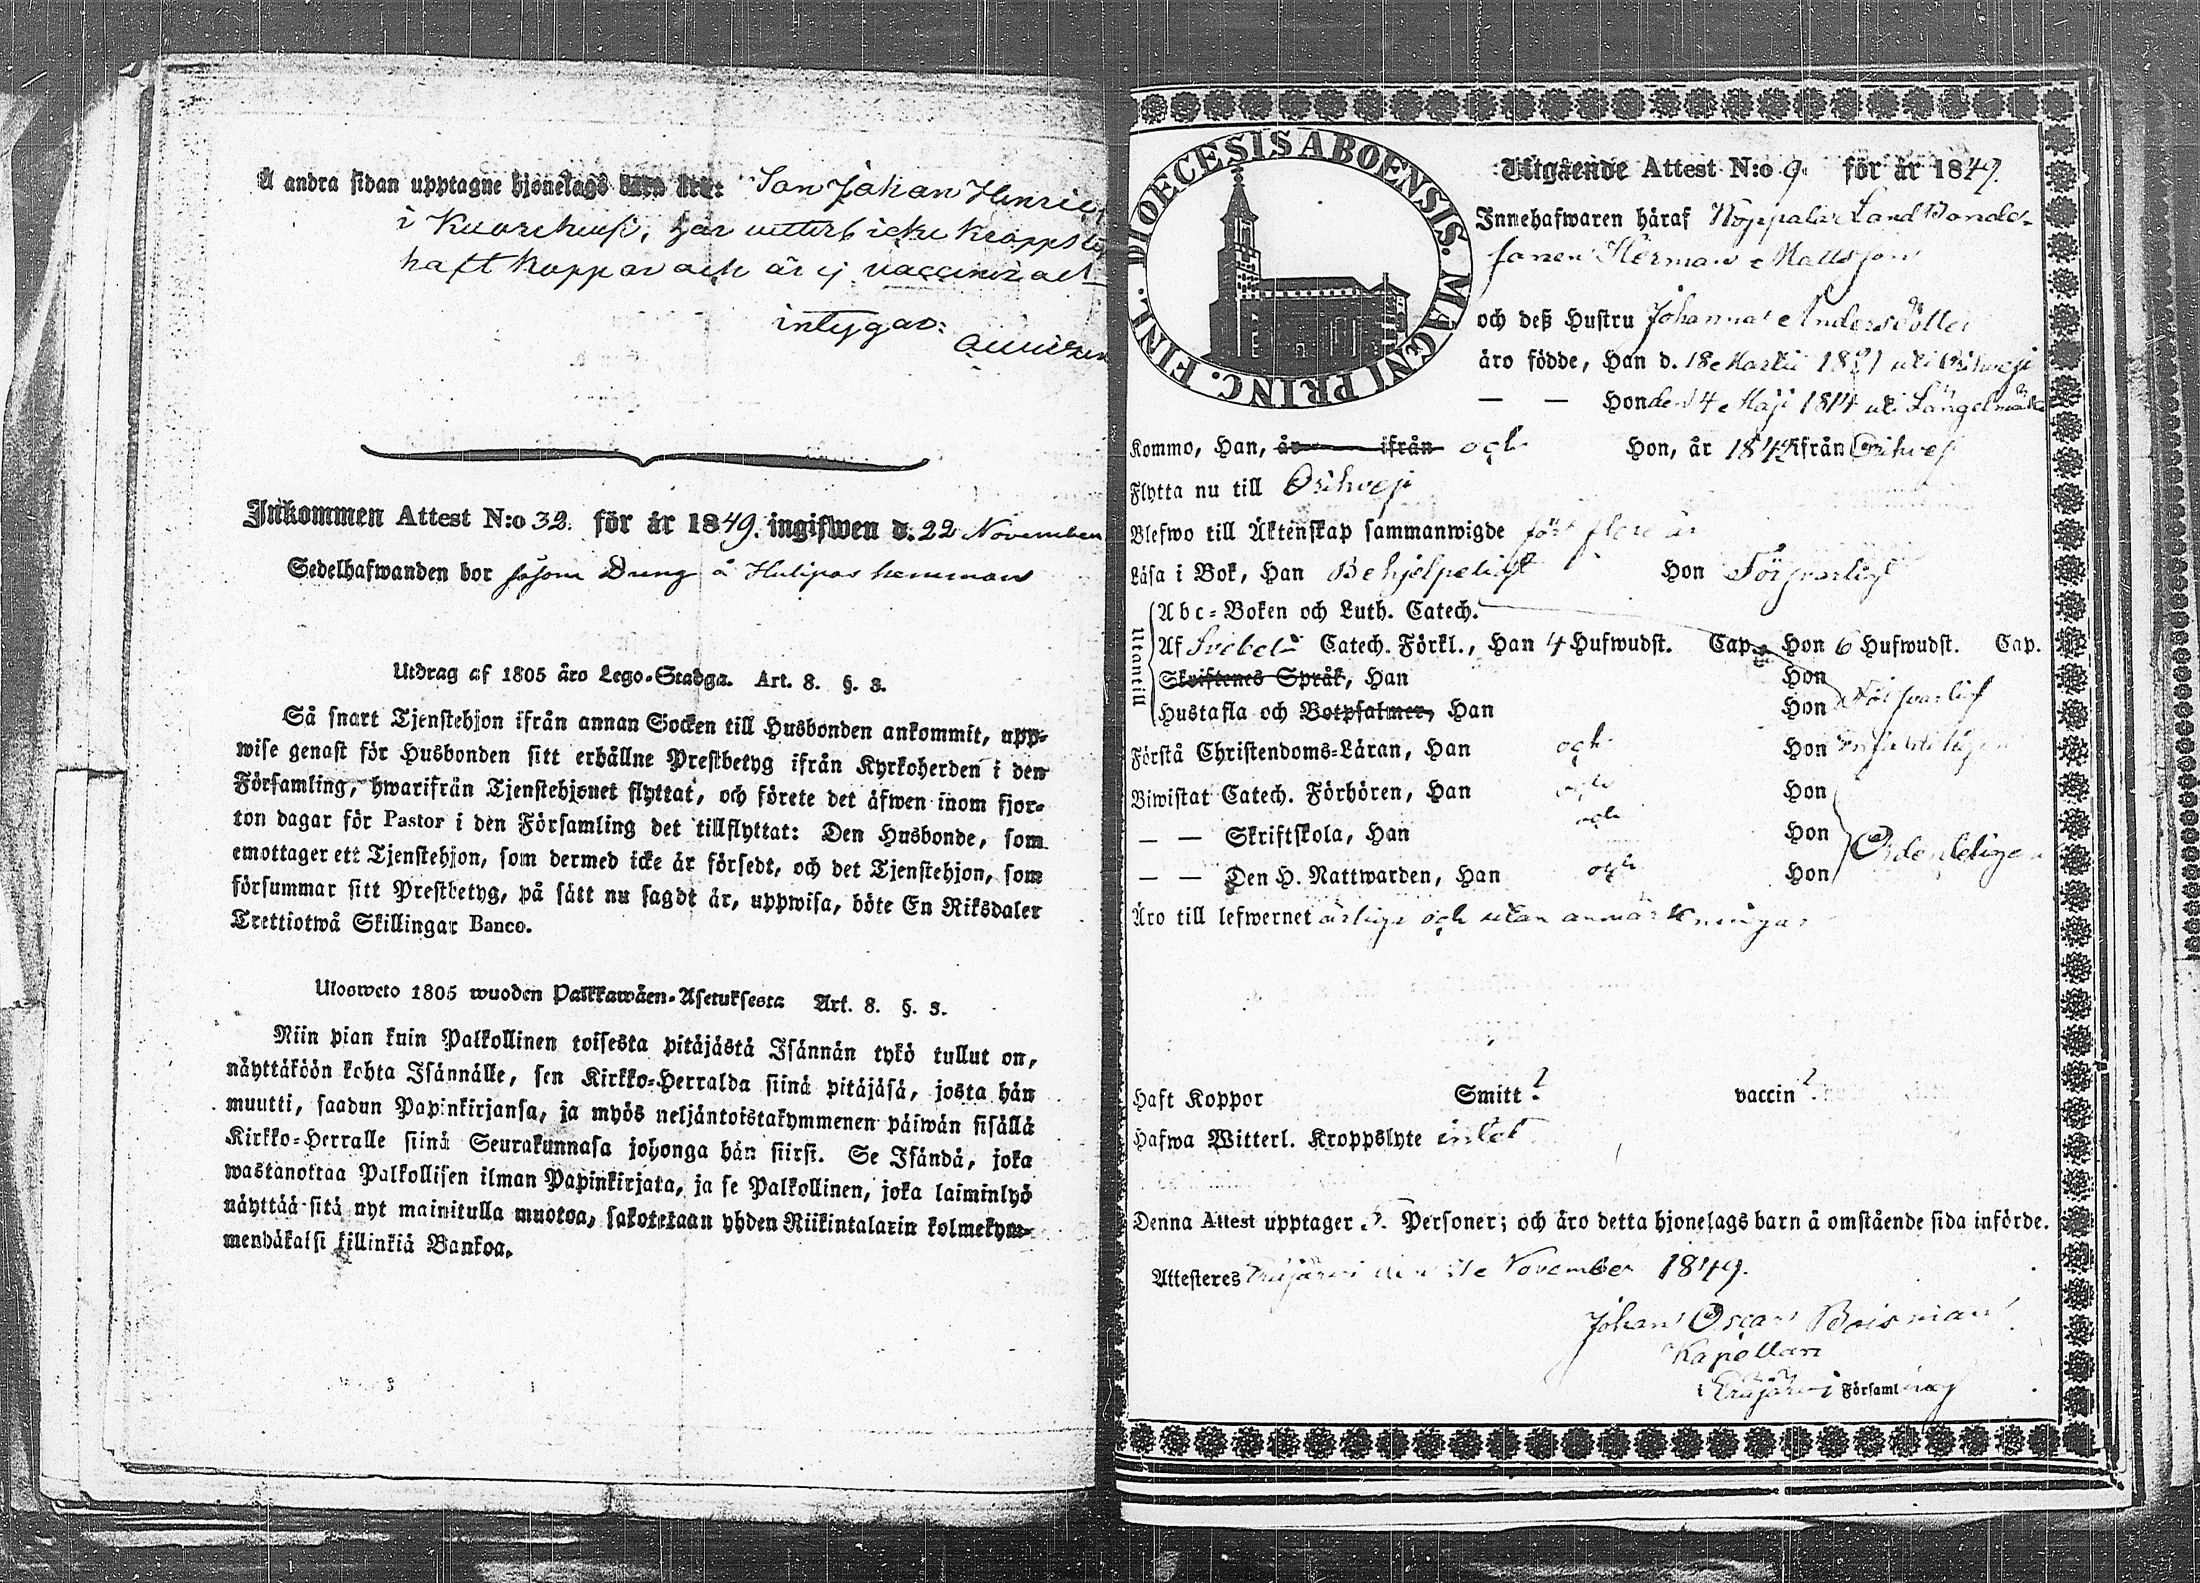 Å andra sidan upptagne hjonelags barn äro: Son Johan Henric
i Kuorehusi, har vitterl. icke kroppsly
haft koppor och är ej vaccinerad
intygar:
Inkommen Attest N:o 32. för år 1849. ingifwen d. 22 November
Sedelhafwanden bor såsom Dräng å Hulipas hemman
Utdrag af 1805 åro Lego-Stadga. Art. 8. §. 3.
Så snart Tjenstehjon ifrån annan Socken till Husbonden ankommit, upp-
wise genast för Husbonden sitt erhållne Prestbetyg ifrån Kyrkoherden i den
Församling, hwarifrån Tjenstehjonet flyttat, och förete det äfwen inom fjor-
ton dagar för Pastor i den Församling det tillflyttat: Den Husbonde, som
emottager ett Tjenstehjon, som dermed icke är försedt, och det Tjenstehjon, som
försummar sitt Prestbetyg, på sätt nu sagdt är, uppwisa, böte En Riksdaler
Trettiotwå Skillingar Banco.
Ulosweto 1805 wuoden Palkkawäen-Asetuksesta Art. 8. §. 3.
Niin pian kuin Palkollinen toisesta pitäjästä Isännän tykö tullut on,
näyttäköön kohta Isännälle, sen Kirkko-Herralda siinä pitäjäsä, josta hän
muutti, saadun Papinkirjansa, ja myös neljäntoistakymmenen päiwän sisällä
Kirkko-Herralle siinä Seurakunnasa johonga hän siirsi. Se Isändä, joka
wastanottaa Palkollisen ilman Papinkirjata, ja se Palkollinen, joka laiminlyö
näyttää sitä nyt mainitulla muotoa, sakotetaan yhden Riikintalarin kolmekym-
mendäkaksi killinkiä Bankoa.
DIOECESIS ABOENSIS. MAGNI PRINC. FINL.
Utgående Attest N:o 9. för år 1849.
Innehafwaren häraf Woppala Land Bonde-
sonen Herman Mattsson
och deß Hustru Johanna Andersdotter
äro födde, Han d. 18 Martii 1821 uti Orihvesi
— — Hon den 4 Maji 1814 uti Längelmäki
Kommo, Han, år ifrån och Hon, år 1842 ifrån Orihvesi
Flytta nu till Orihvesi
Blefwo till Äktenskap sammanwigde för flere år
Läsa i Bok, Han Behjelpeligt Hon Försvarligt
Utantill
Abc-Boken och Luth. Catech.
Af Svebel. Catech. Förkl., Han 4 Hufwudst. Cap. Hon 6 Hufwudst. Cap.
Skriftenes Språk, Han Hon
Hustafla och Botpsalmer, Han Hon Försvarligt
Förstå Christendoms-Läran, Han och Hon
Biwistat Catech. Förhören, Han och Hon
— — Skriftskola, Han och Hon Ordentligen
— — Den H. Nattwarden, Han och Hon
Äro till lefwernet ärlige och utan anmärkningar
Haft Koppor Smitt? vaccin?
Hafwa Witterl. Kroppslyte intet
Denna Attest upptager 3. Personer; och äro detta hjonelags barn å omstående sida införde.
Attesteres Eräjärvi den November 1849.
Johan Oscar Boisman
Kapellan
i Eräjärvi Församling